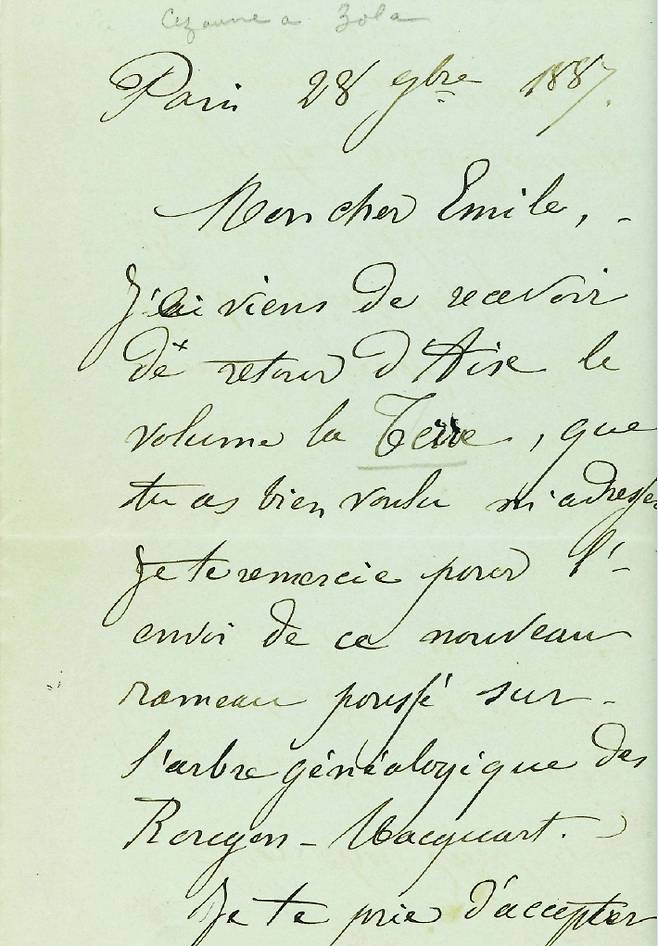 Cezanne a Zola
Paris 28 9bre 1887.
Mon cher Emile, -
J'ai viens de recevoir
de retour d'Aix le
volume la Terre, que
tu as bien voulu m'adresser
Je te remercie pour l'-
envoi de ce nouveau
rameau poussé sur -
l'arbre généalogique des
Rougon - Macquart.
Je te prie d'accepter